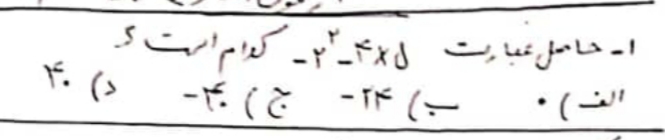 ۱- حاصل عبارت -۲^۲-۴×۵ کدام است؟
الف) ۰ ب) -۲۴ ج) -۴۰ د) ۴۰